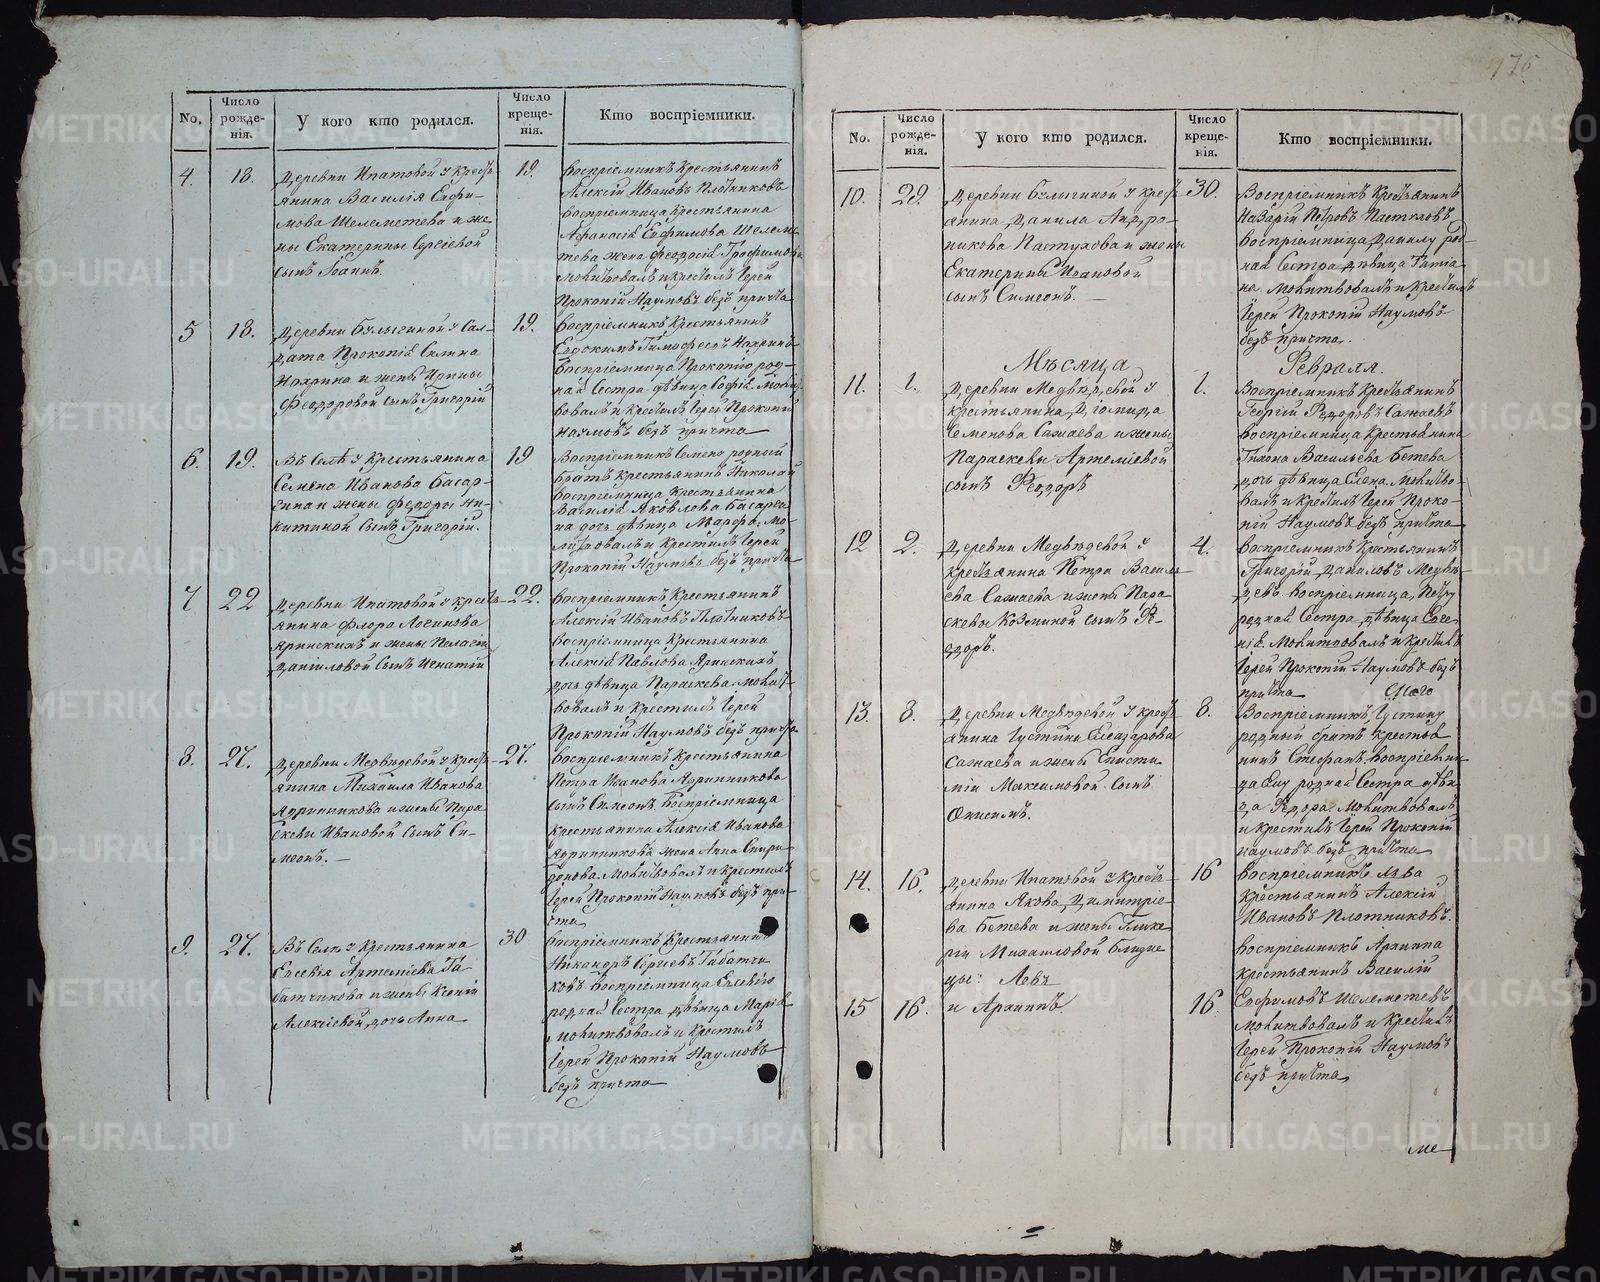 176
No.
Число рожде-нія.
У кого кто родился.
Число креще-нія.
Кто воспріемники.
4.
18.
Деревни Ипатовой у кресть
янина Василія Евфи-
мова Шелеметева и же
ны Екатерины Сергіевой
сынъ Іоаннъ.
19.
Воспріемникъ Крестьянинъ
Алексій Ивановъ Плотниковъ
воспріемница Крестьянина
Афанасія Евфимова Шелеме
тева жена Феодосія Трофимова
Молитвовалъ и крестилъ Іерей
Прокопій Наумовъ безъ причта
5
18.
Деревни Булыгиной у Сал-
дата Прокопія Силина
и жены Ирины
Феодоровой сынъ Григорій
19.
Воспріемникъ Крестьянинъ
Евдокимъ Тимофеевъ
Воспріемница Прокопію род-
ная Сестра дѣвица Софія. Молит
вовалъ и крестилъ Іерей Прокопій
Наумовъ безъ причта
6.
19.
Въ Селѣ у Крестьянина
Семена Иванова Басар-
гина и жены Федоры Ни-
китиной сынъ Григорій.
19
Воспріемникъ Семену родный
братъ крестьянинъ Николай
воспріемница крестьянина
Василія Яковлева Басарги
на дочь дѣвица Марфа. Мо-
литвовалъ и Крестилъ Іерей
Прокопій Наумовъ безъ причта
7
22
Деревни Ипатовой у кресть
янина Флора Логинова
Яринскихъ и жены Пелагіи
Даніиловой Сынъ Игнатій
22.
Воспріемникъ Крестьянинъ
Алексій Ивановъ Плотниковъ
воспріемница Крестьянина
Алексія Павлова Яринскихъ
дочь дѣвица Параскева молит-
вовалъ и крестилъ Іерей
Прокопій Наумовъ безъ причта.
8.
27.
Деревни Медвѣдевой у кресть
янина Михаила Иванова
Ядринникова и жены Пара
скевы Ивановой сынъ Си-
меонъ.
27.
Воспріемникъ Крестьянина
Петра Иванова Ядринникова
сынъ Симеонъ. Воспріемница
крестьянина Алексія Иванова
Ядринникова жена Анна Спири
донова. Молитвовалъ и крестилъ
Іерей Прокопій Наумовъ безъ при-
чта
9.
27.
Въ Селѣ у Крестьянина
Евсевія Артеміева Га
батчикова и жены Ксеніи
Алексіевой, дочь Анна
30
Воспріемникъ Крестьянинъ
Никаноръ Сергіевъ Габатчи
ковъ Воспріемница Евсевію
родная Сестра дѣвица Марія
молитвовалъ и крестилъ
Іерей Прокопій Наумовъ
безъ причта
No.
Число рожде-нія.
У кого кто родился.
Число креще-нія.
Кто воспріемники.
10.
29.
Деревни Булыгиной у кресть
янина Данила Андро-
никова Пастухова и жены
Екатерины Ивановой
сынъ Симеонъ.
30.
Воспріемникъ Крестьянинъ
Назарій Петровъ Пастуховъ
воспріемница Данилу род-
ная Сестра дѣвица Татіа
на. Молитвовалъ и крестилъ
Іерей Прокопій Наумовъ
безъ причта.
Мѣсяца
Февраля.
11.
1.
Деревни Медвѣдевой у
крестьянина Діомида
Семенова Сажаева и жены
Параскевы Артеміевой
сынъ Феодоръ
1.
Воспріемникъ Крестьянинъ
Георгій Федоровъ Сажаевъ
воспріемница Крестьянина
Тихона Васильева Бетева
дочь дѣвица Елена. Молитво-
валъ и крестилъ Іерей Проко-
пій Наумовъ безъ причта
12
2.
Деревни Медвѣдевой у
крестьянина Петра Василь
ева Сажаева и жены Пара
скевы Козминой сынъ Фе-
доръ.
4.
Воспріемникъ Крестьянинъ
Григорій Даниловъ Медвѣ-
девъ. воспріемница, Петру
родная Сестра дѣвица Евге-
нія. Молитвовалъ и крестилъ
Іерей Прокопій Наумовъ безъ
причта
13.
8.
Деревни Медвѣдевой у кресть
янина Іустина Елеазарова
Сажаева и жены Еписти
міи Максимовой сынъ
Онисимъ.
8.
Воспріемникъ, Іустину
родный братъ, крестья
нинъ Стефанъ, воспріемни
ца Ему родная Сестра дѣви
ца Федора. Молитвовалъ
и крестилъ Іерей Прокопій
Наумовъ безъ причта
14.
16.
Деревни Ипатовой у Кресть-
янина Якова Димитріе-
ва Бетева и жены Глике
ріи Михаиловой близне
цы: Левъ
16
воспріемникъ Льва
крестьянинъ Алексій
Ивановъ Плотниковъ.
15
16.
и Архиппъ
16.
воспріемникъ Архиппа
крестьянинъ Василій
Евфимовъ Шелеметевъ
молитвовалъ и Крестилъ
Іерей Прокопій Наумовъ
безъ причта
ме
METRIKI.GASO-URAL.RU